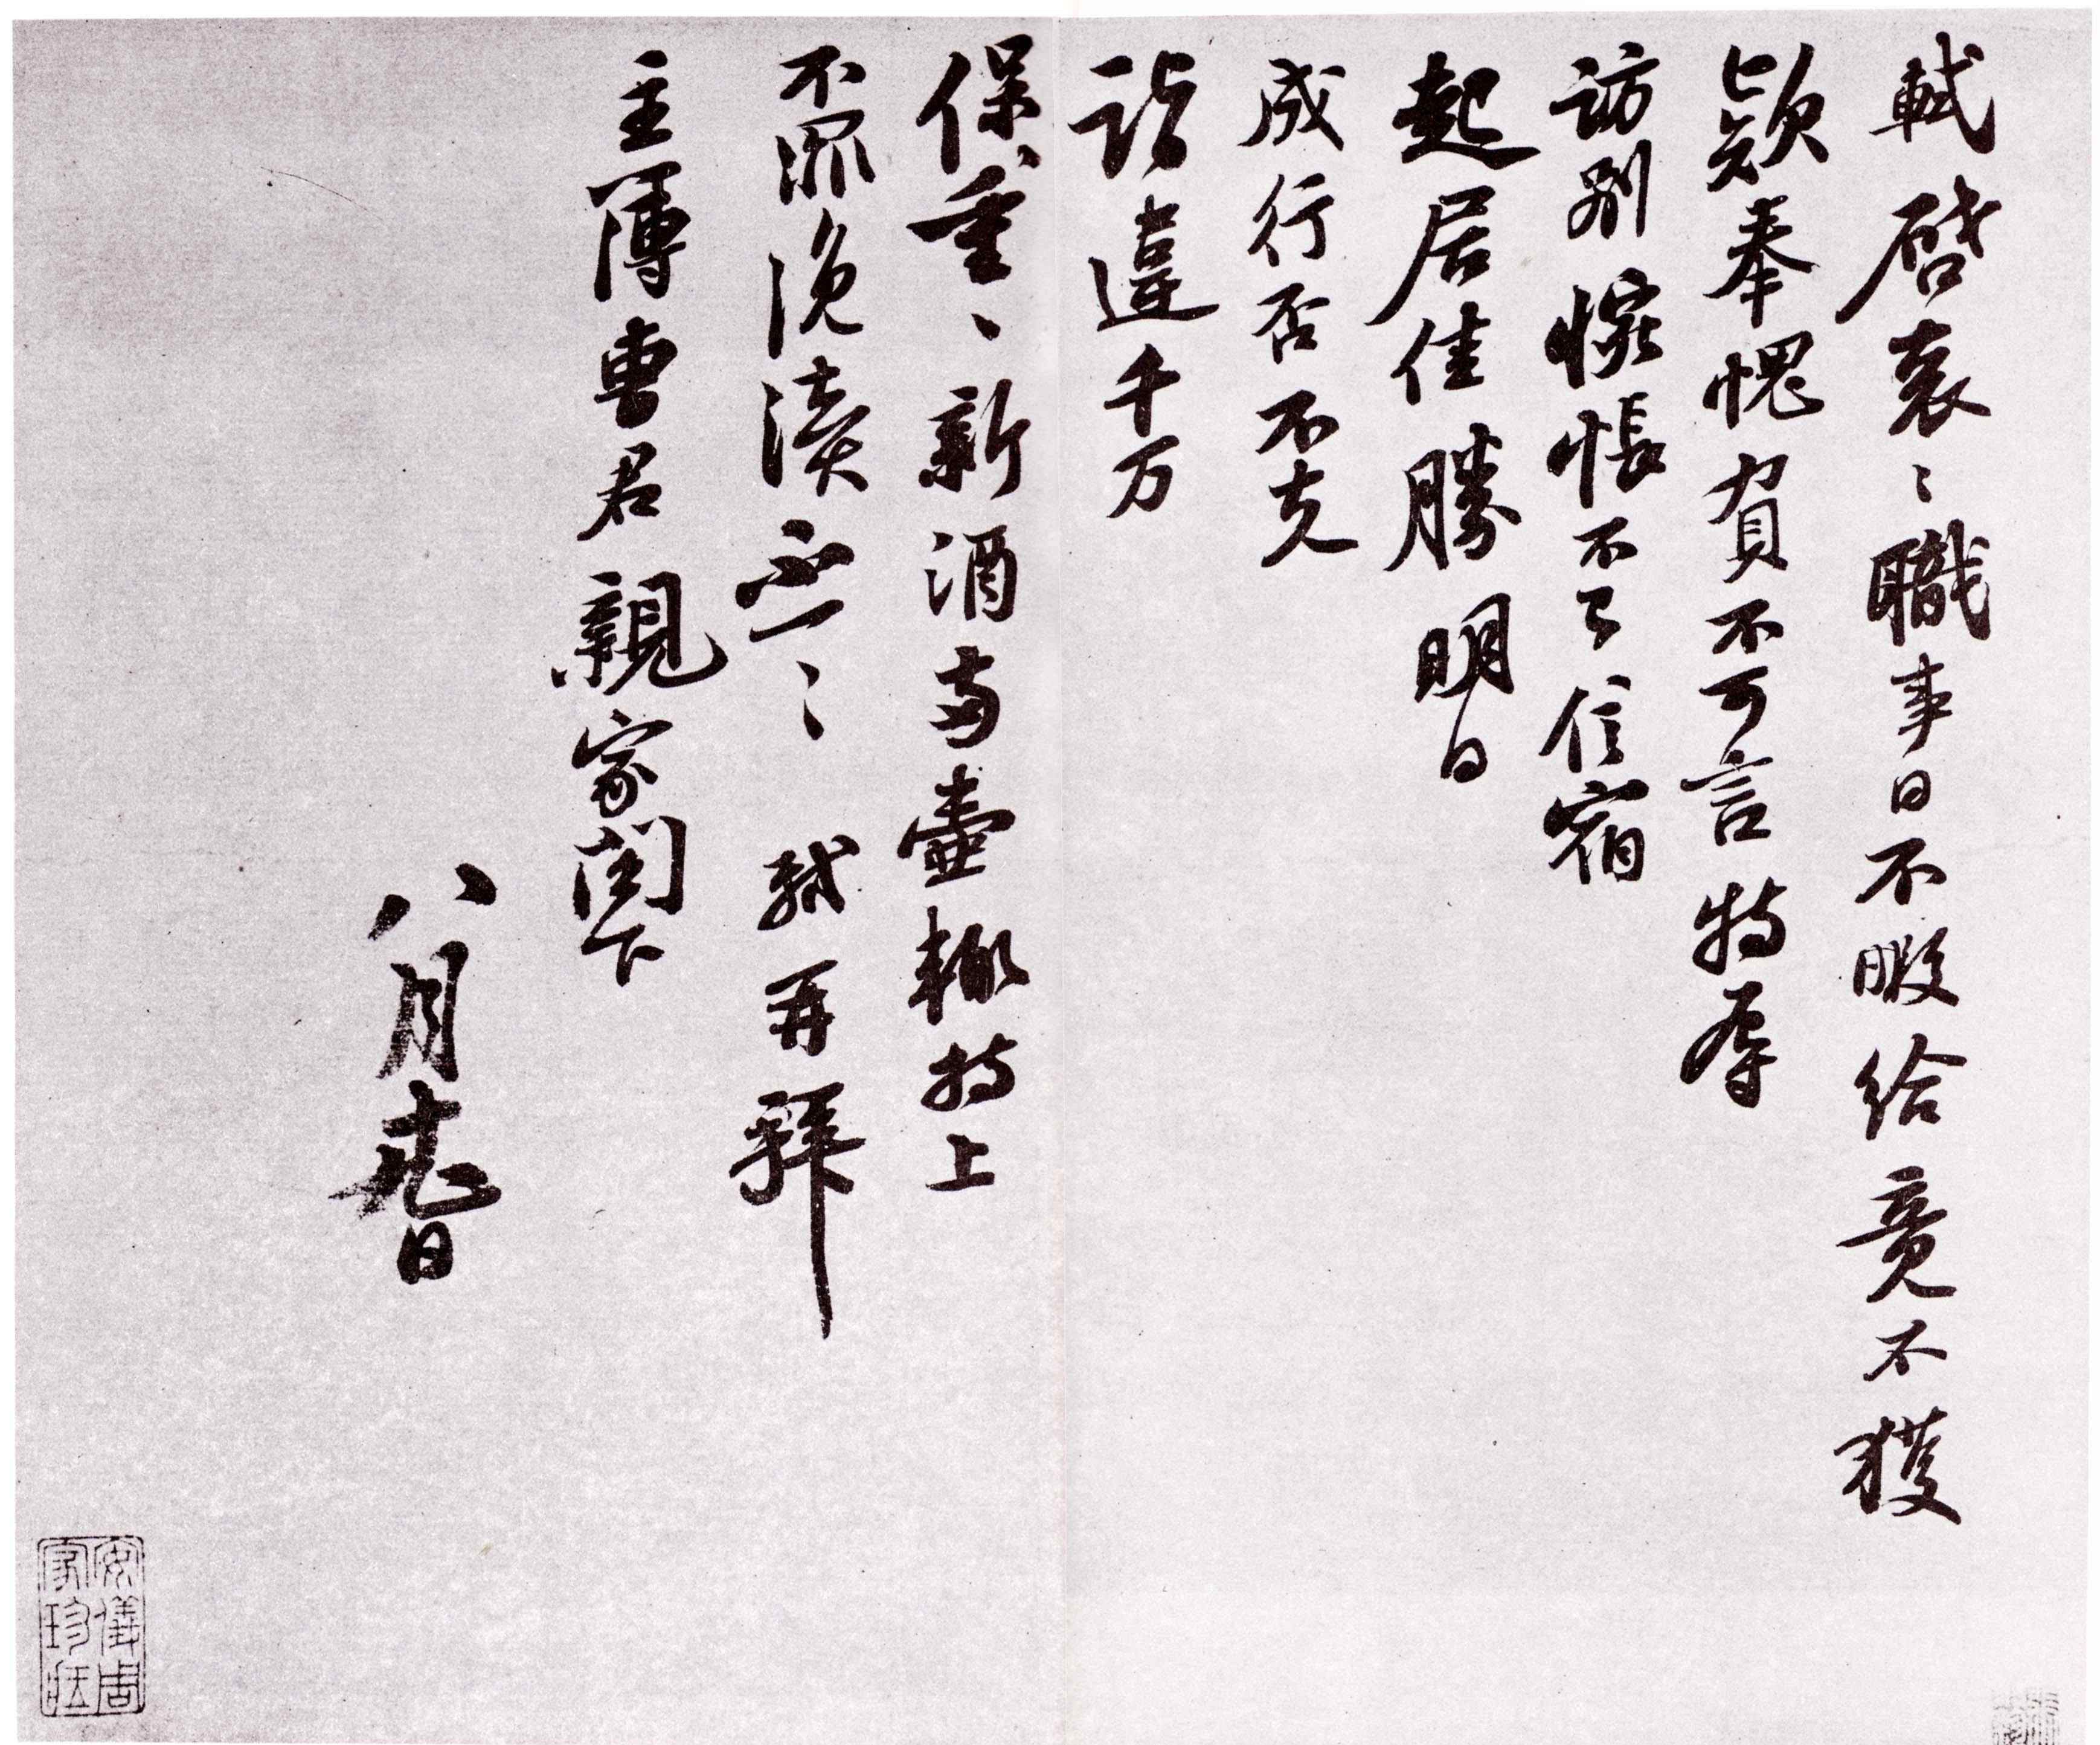 軾啓衰〻職事日不暇給竟不獲
欵奉愧負不可言特辱
訪別惋悵不已信宿
起居佳勝明日
成行否不克
詣違千万
保重〻新酒兩壺輙持上
不罪浼瀆不一〻軾再拜
主簿曹君親家閤下
八月
日
安儀周
家珍藏